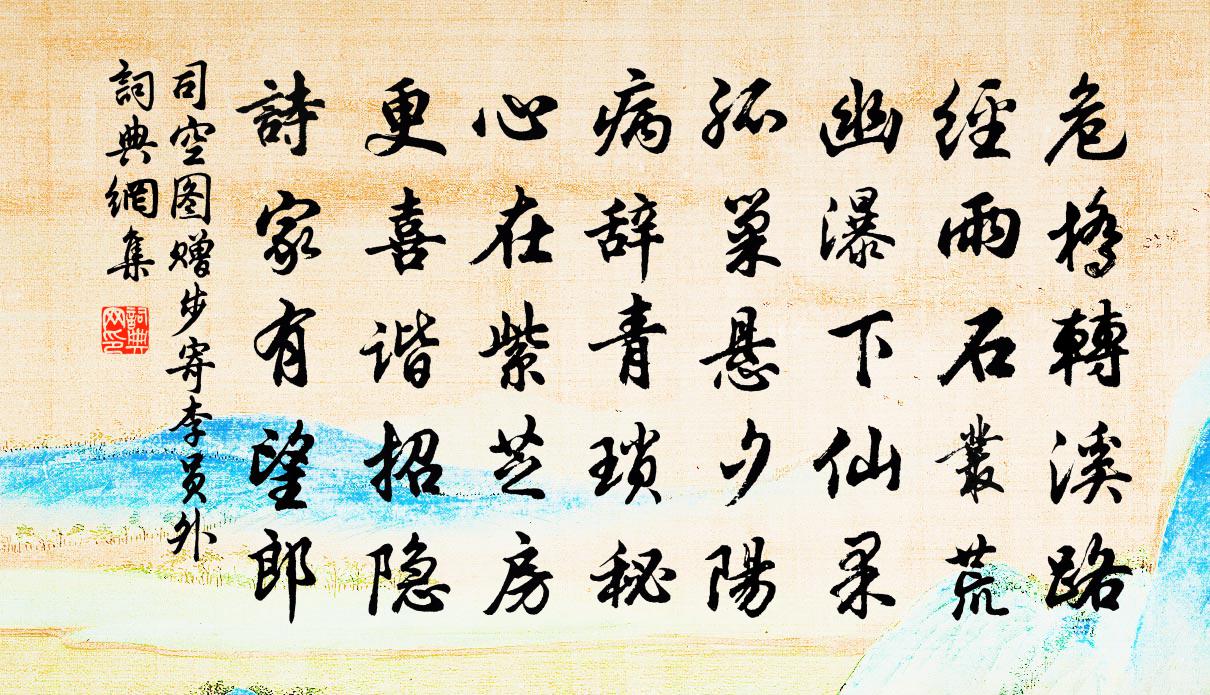 危橋轉溪路
經雨石叢荒
幽瀑下仙果
孤巢悬夕陽
病辞青琐秘
心在紫芝房
更喜谐招隐
詩家有望郎
司空图赠步寄李员外
詞典網集
詞典网印